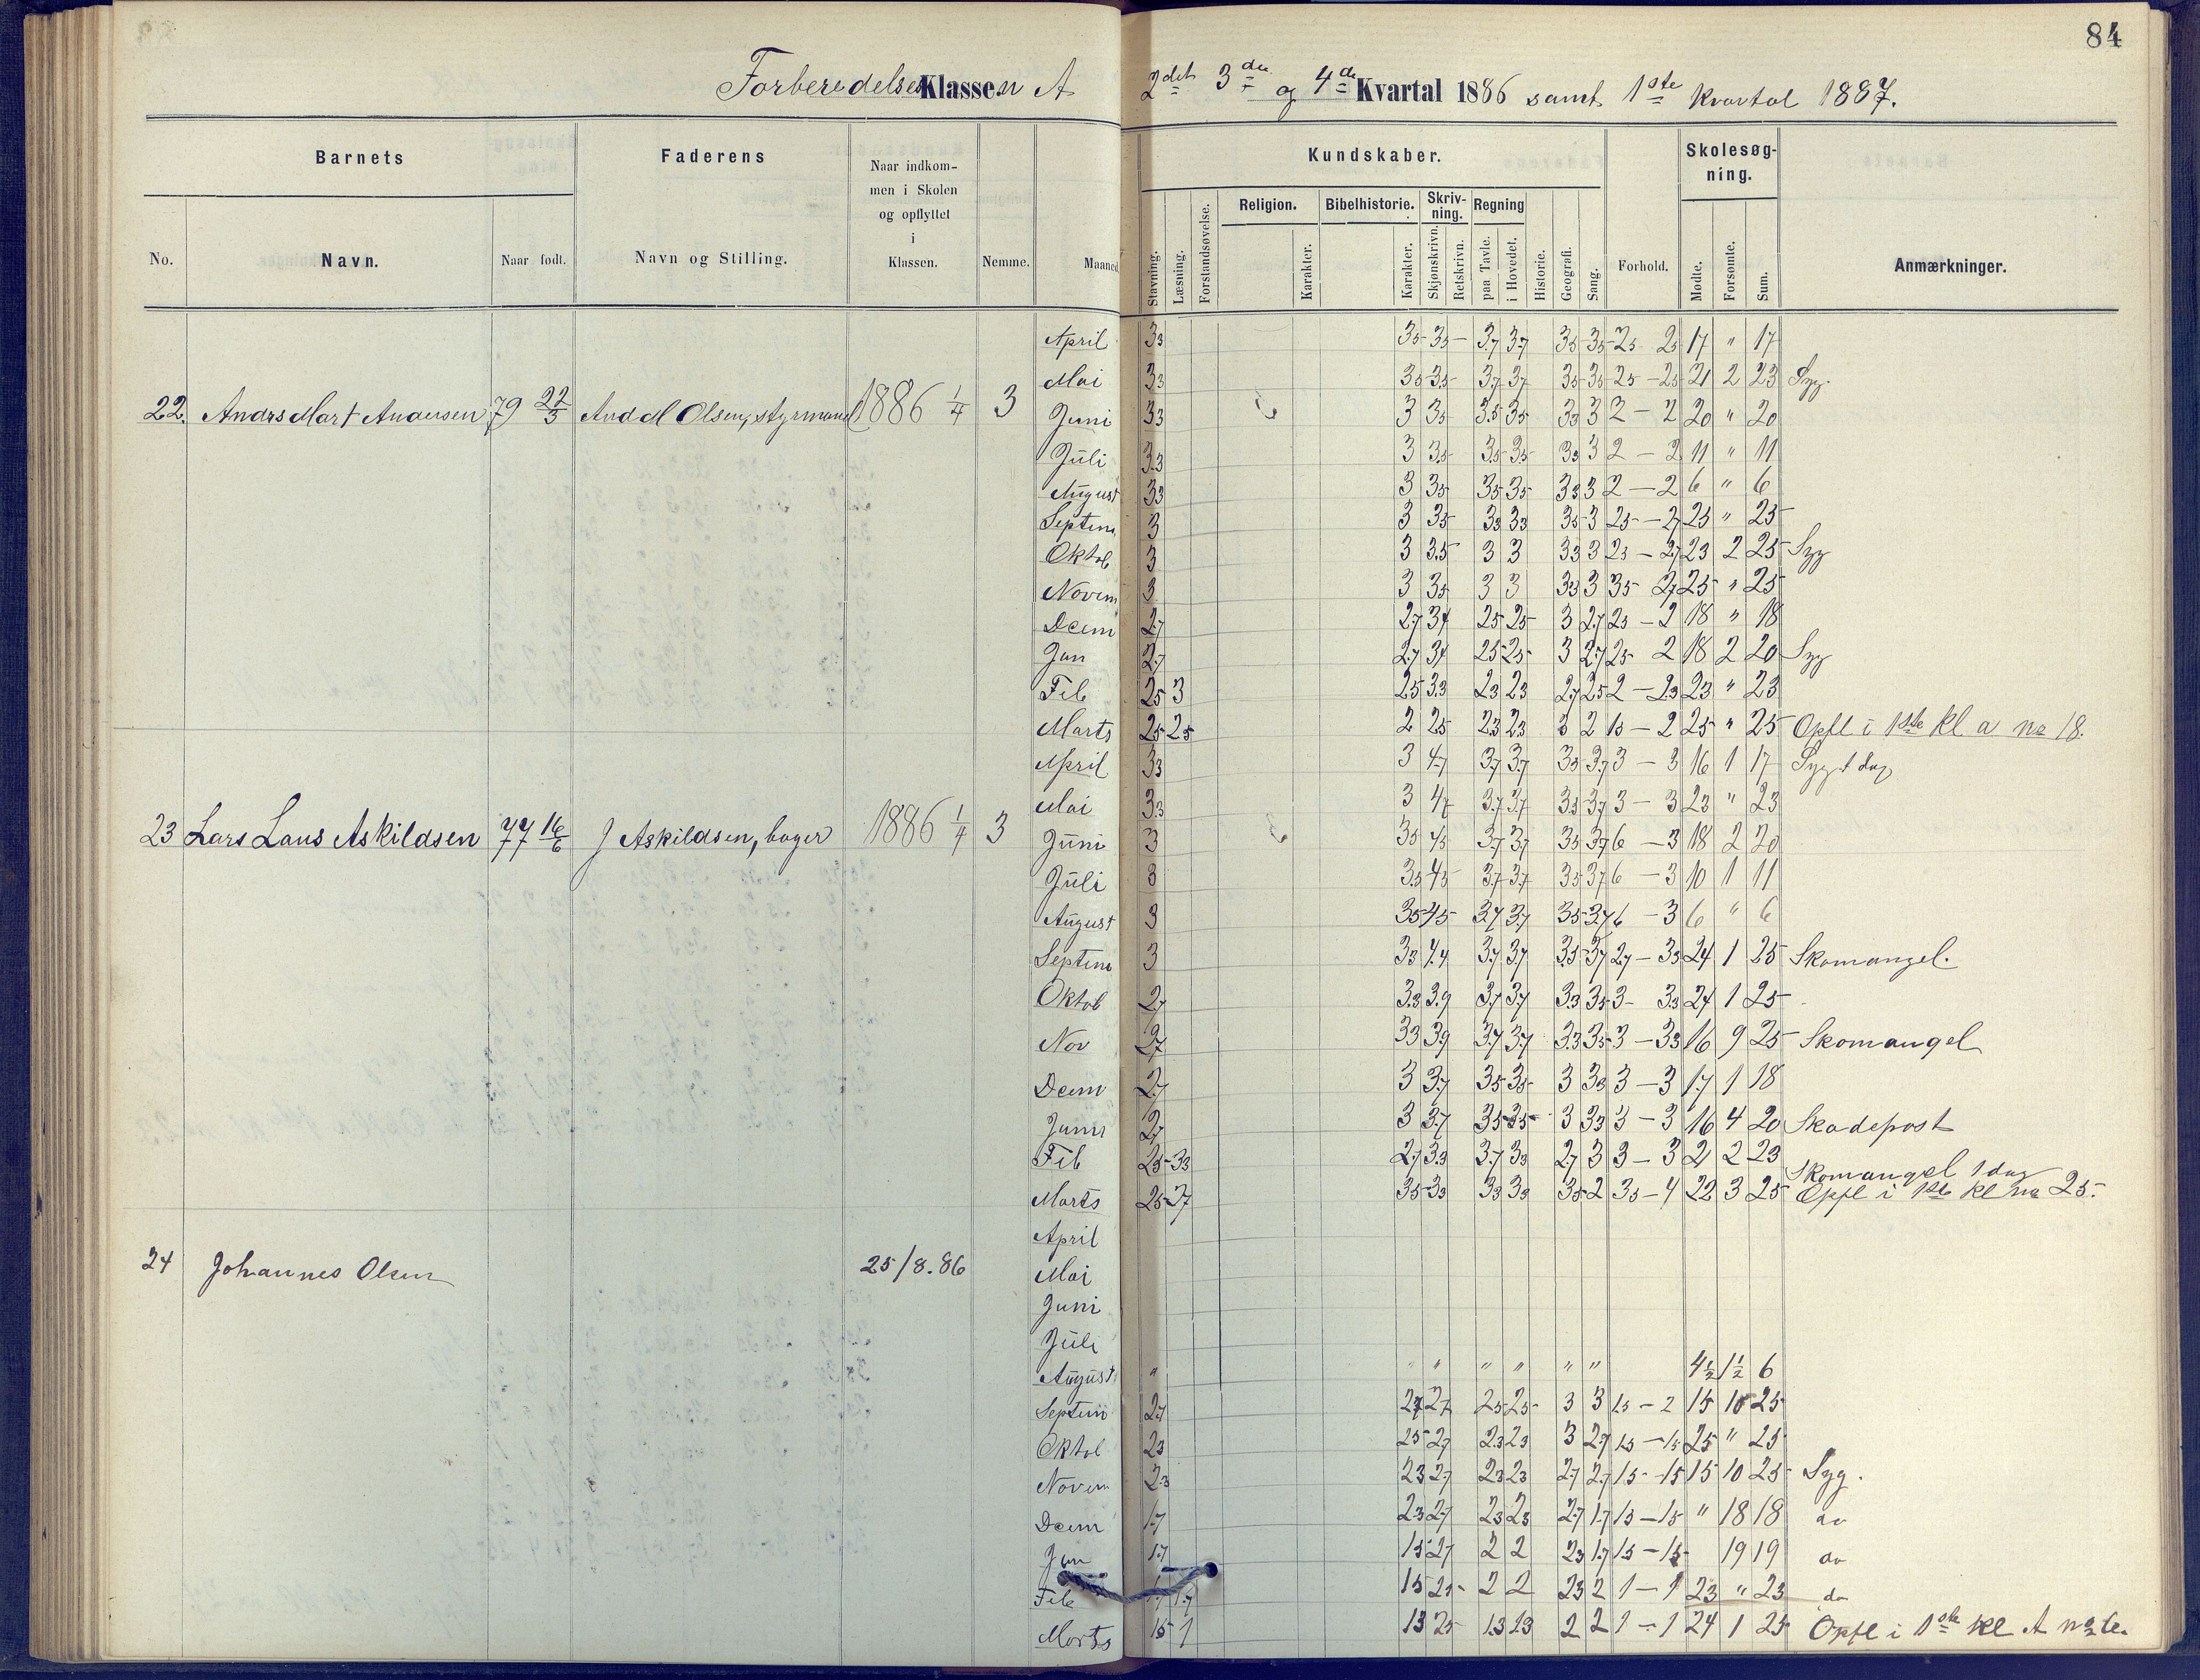 84
Forberedelses Klassen A
2det 3die og 4de Kvartal 1886 samt 1ste Kvartal 1887.
Barnets
Faderens
Naar indkom-
men i Skolen
og opflyttet
i
Klassen.
Kundskaber.
Skolesøg-
ning.
No.
Navn.
Naar født.
Navn og Stilling.
Nemme.
Maaned
Stavning.
Læsning.
Forstandsøvelse.
Religion.
Karakter.
Bibelhistorie.
Karakter.
Skriv-
ning.
Skjønskrivn.
Retskrivn.
Regning
paa Tavle.
i Hovedet.
Historie.
Geografi.
Sang.
Forhold.
Mødte.
Forsømte.
Sum.
Anmærkninger.
22. Andrs Mart Andersen 79 22/3 And M Olsen, styrmand 1886 1/4 3
April 33 35 35 – 37 37 35 35 25 25 17 " 17
Mai 33 35 35 37 37 35 35 25 – 25 21 2 23 Syg.
Juni 33 3 35 35 35 33 3 2 – 2 20 " 20
Juli 33 3 35 35 35 33 3 2 – 2 11 " 11
August 33 3 35 35 35 33 3 2 – 2 6 " 6
Septem 3 3 35 33 33 35 3 25 – 27 25 " 25
Oktob 3 3 35 3 3 33 3 25 – 27 23 2 25 Syg
Novem 3 3 35 3 3 33 3 35 27 25 " 25
Dcem 27 27 34 25 25 3 27 25 – 2 18 " 18
Jan 27 27 34 25 25 3 27 25 2 18 2 20 Syg
Feb 25 3 25 33 23 23 27 25 2 – 23 23 " 23
Marts 25 25 2 25 23 23 3 2 15 – 2 25 " 25 Opfl i 1ste Kl a no 18.
23 Lars Laus Askildsen 77 16/6 J Askildsen, bager 1886 1/4 3
April 33 3 47 37 37 33 37 3 – 3 16 1 17 Syg 1 dag
Mai 33 3 47 37 37 33 37 3 – 3 23 " 23
Juni 3 35 45 37 37 35 37 6 – 3 18 2 20
Juli 3 35 45 37 37 35 37 6 – 3 10 1 11
August 3 35 45 37 37 35 37 6 – 3 6 " 6
Septem 3 33 44 37 37 35 37 27 – 33 24 1 25 Skomangel.
Oktob 27 33 39 37 37 33 35 3 – 33 24 1 25
Nov 27 33 39 37 37 33 35 3 – 33 16 9 25 Skomangel
Dcem 27 3 37 35 35 3 33 3 – 3 17 1 18
Janur 27 3 37 35 35 3 33 3 – 3 16 4 20 Skadepost
Feb 25 33 27 33 37 33 27 3 3 – 3 21 2 23
Skomangel 1 dag
Marts 25 27 35 33 33 33 35 2 35 – 4 22 3 25 Opfl i 1ste Kl no 25.
24 Johannes Olsen 25/8.86
April
Mai
Juni
Juli
August " " " " " " " 4½ 1½ 6
Septem 27 27 27 25 25 3 3 15 – 2 15 10 25
Oktob 23 25 27 23 23 3 27 15 – 15 25 " 25
Novem 23 23 27 23 23 27 27 15 – 15 15 10 25 Syg.
Dcem 17 23 27 23 23 27 17 15 – 15 " 18 18 do
Jan 17 15 27 2 2 23 17 15 – 15 19 19 do
Feb 17 17 15 25 2 2 23 2 1 – 1 23 " 23 do
Marts 15 1 13 25 13 13 2 2 1 – 1 24 1 25 Opfl i 1ste Kl A no 6.